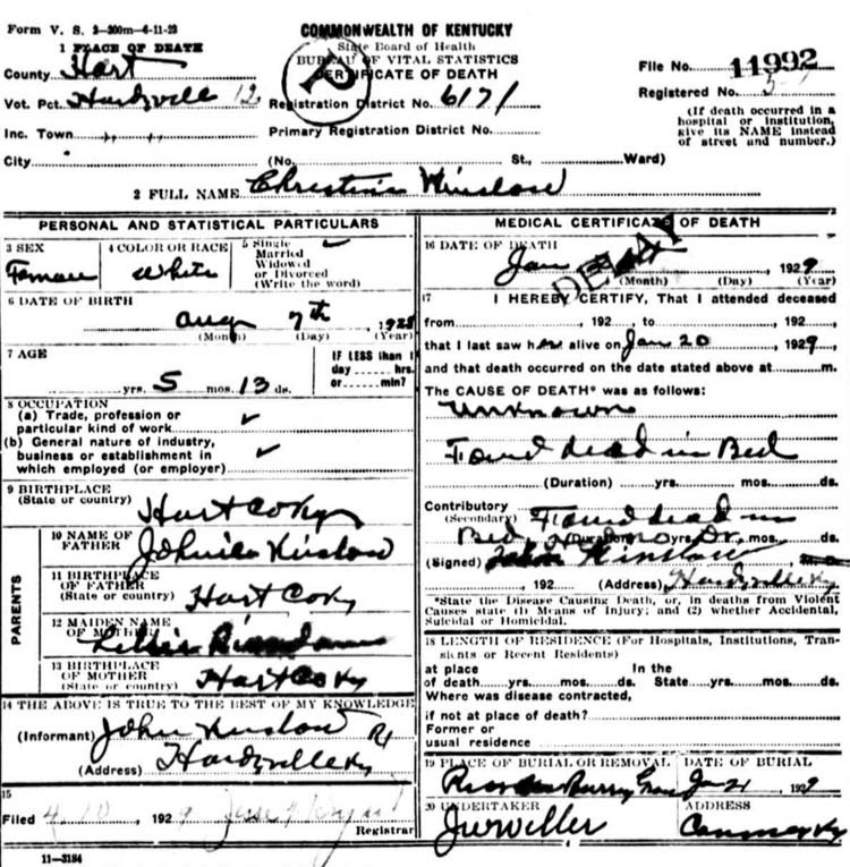 Form V. S. 2-200m-4-11-23
COMMONWEALTH OF KENTUCKY
State Board of Health
BUREAU OF VITAL STATISTICS
CERTIFICATE OF DEATH
1 PLACE OF DEATH
County Hart
Vot. Pct. Hardyville 12
Inc. Town
City
Registration District No. 6171
Primary Registration District No.
(No. St., Ward)
File No. 11992
Registered No. 5
(If death occurred in a
hospital or institution,
give its NAME instead
of street and number.)
2 FULL NAME Christina Kinslow
PERSONAL AND STATISTICAL PARTICULARS
3 SEX
Female
4 COLOR OR RACE
White
5 Single ✓
Married
Widowed
or Divorced
(Write the word)
6 DATE OF BIRTH
Aug 7th, 1928
(Month) (Day) (Year)
7 AGE
yrs. 5 mos. 13 ds.
IF LESS than 1
day hrs.
or min?
8 OCCUPATION
(a) Trade, profession or
particular kind of work ✓
(b) General nature of industry,
business or establishment in
which employed (or employer) ✓
9 BIRTHPLACE
(State or country)
Hart Co Ky
PARENTS
10 NAME OF
FATHER
Kinslow
11 BIRTHPLACE
OF FATHER
(State or country) Hart Co Ky
12 MAIDEN NAME
OF MOTHER
13 BIRTHPLACE
OF MOTHER
(State or country) Hart Co Ky
14 THE ABOVE IS TRUE TO THE BEST OF MY KNOWLEDGE
(Informant) John Kinslow
(Address) Hardyville Ky
15
Filed 4 10, 1929
Registrar
11-3184
MEDICAL CERTIFICATE OF DEATH
16 DATE OF DEATH
DELAY
Jan, 1929
(Month) (Day) (Year)
17 I HEREBY CERTIFY, That I attended deceased
from, 192 to, 192,
that I last saw her alive on Jan 20, 1929,
and that death occurred on the date stated above at m.
The CAUSE OF DEATH* was as follows:
Unknown
Found dead in Bed
(Duration) yrs. mos. ds.
Contributory Found dead in
(Secondary)
Bed, had no Dr.
(Duration) yrs. mos. ds.
(Signed) John Kinslow, M.D.
, 192 (Address) Hardyville Ky
*State the Disease Causing Death, or, in deaths from Violent
Causes state (1) Means of Injury; and (2) whether Accidental,
Suicidal or Homicidal.
18 LENGTH OF RESIDENCE (For Hospitals, Institutions, Tran-
sients or Recent Residents)
at place In the
of death yrs. mos. ds. State yrs. mos. ds.
Where was disease contracted,
if not at place of death?
Former or
usual residence
19 PLACE OF BURIAL OR REMOVAL
DATE OF BURIAL
Jan 21, 1929
20 UNDERTAKER
ADDRESS